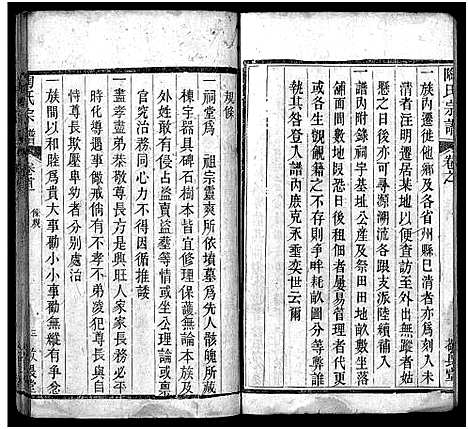 陶氏宗譜
卷之
敬長堂
一族內遷徙他鄉及各省州縣巳清者亦為刻入未
清者註明上遷居某地以示區别間有無蹤者姑
懸之後日亦可尋源溯流各跟支派陸續補入
一譜內附錄祠宇基址產及祭田田地畝數亦有店
舖面間數地段恐日後租佃者屢易管理者代更
或生覬覦籍以不存爭畔耗畝圖吞等弊誰
執其咎登大譜內庶克永垂奕世云爾
規條
一祠堂為　祖宗靈爽所依墳墓為先人骸魄所藏
棟宇器具碑石樹本皆宜修理保護無論本族及
外姓如有侵占盜賣盜砍等情或坐公理論或稟
官究治務同心力不因循推諉
一盡孝盡弟恭敬尊長方是興旺人家家長務宜
做戒倘有不孝不弟凌犯尊長者分别責罰若
恃尊長欺壓卑幼者分别處治
一族間以和睦爲貴大事勸小小事勸無縱有爭忿
陶氏宗譜
卷首
條規
三
敬長堂